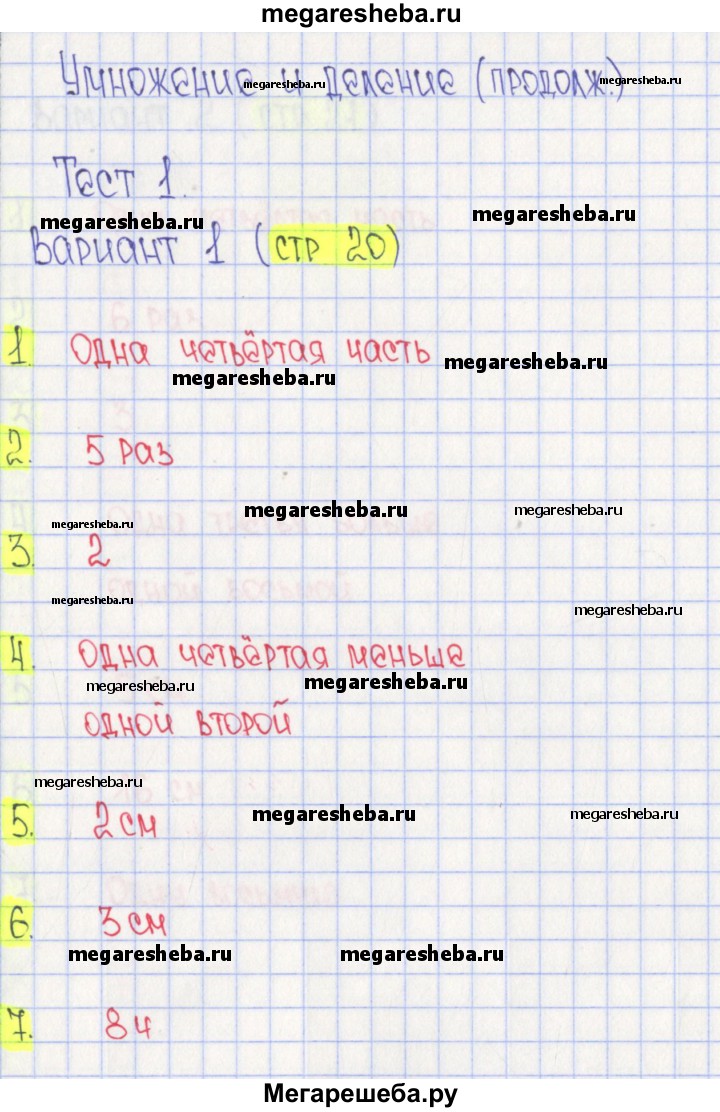 megaresheba.ru
Умножение и деление (продолж.)
megaresheba.ru megaresheba.ru
Тест 1.
megaresheba.ru megaresheba.ru
Вариант 1 (стр 20)
1. Одна четвёртая часть
megaresheba.ru megaresheba.ru
2. 5 раз
megaresheba.ru megaresheba.ru
megaresheba.ru
3. 2
megaresheba.ru megaresheba.ru
4. Одна четвёртая меньше
megaresheba.ru megaresheba.ru
одной второй
megaresheba.ru
5. 2 см
megaresheba.ru megaresheba.ru
6. 3 см
megaresheba.ru megaresheba.ru
7. 8 ч
Мегарешеба.ру